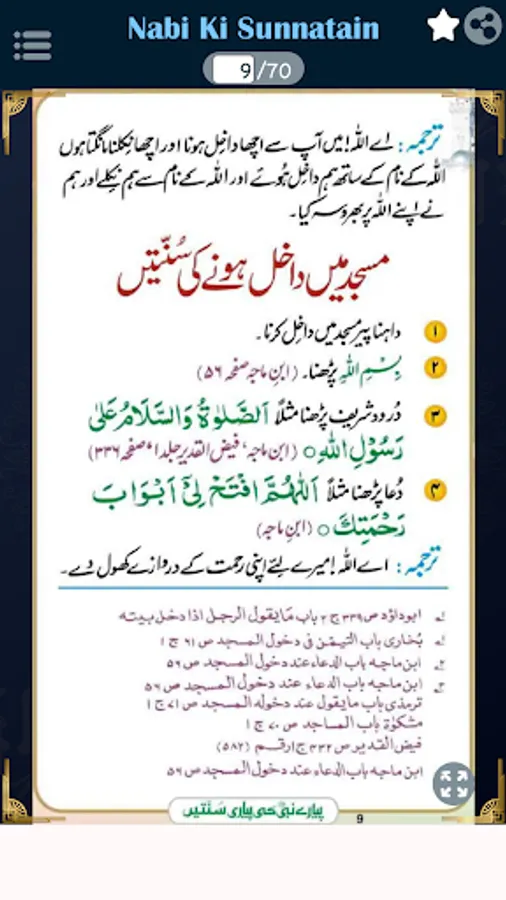 Nabi Ki Sunnatain
9/70
ترجمہ: اے اللہ! میں آپ سے اچھا داخل ہونا اور اچھا نکلنا مانگتا ہوں
اللہ کے نام کے ساتھ ہم داخل ہُوئے اور اللہ کے نام سے ہم نکلے اور ہم
نے اپنے اللہ پر بھروسہ کیا۔
مسجد میں داخل ہونے کی سُنّتیں
۱ داہنا پیر مسجد میں داخل کرنا۔
۲ بِسْمِ اللهِ پڑھنا۔ (ابنِ ماجہ صفحہ ۵۶)
۳ دُرود شریف پڑھنا مثلاً اَلصَّلٰوةُ وَالسَّلَامُ عَلٰی
رَسُوْلِ اللهِ ○ (ابن ماجہ، فیض القدیر جلد ۱ صفحہ ۳۳۶)
۴ دُعا پڑھنا مثلاً اَللّٰهُمَّ افْتَحْ لِیْٓ اَبْوَابَ
رَحْمَتِكَ ○ (ابن ماجہ)
ترجمہ: اے اللہ! میرے لئے اپنی رحمت کے دروازے کھول دے۔
ابوداؤد ص ۳۳۹ ج ۲ باب مَا یقول الرجل اذا دخل بیته
بُخاری باب التیمن فی دخول المسجد ص ۶۱ ج ۱
ابن ماجه باب الدعاء عند دخول المسجد ص ۵۶
ابن ماجه باب الدعاء عند دخول المسجد ص ۵۶
ترمذی باب ما یقول عند دخوله المسجد ص ۷۱ ج ۱
مشکوٰة باب المساجد ص ۷۰ ج ۱
فیض القدیر ص ۴۳۲ ج ۱ رقم (۵۸۲)
ابن ماجه باب الدعاء عند دخول المسجد ص ۵۶
پیارے نبی کی پیاری سُنتیں
9